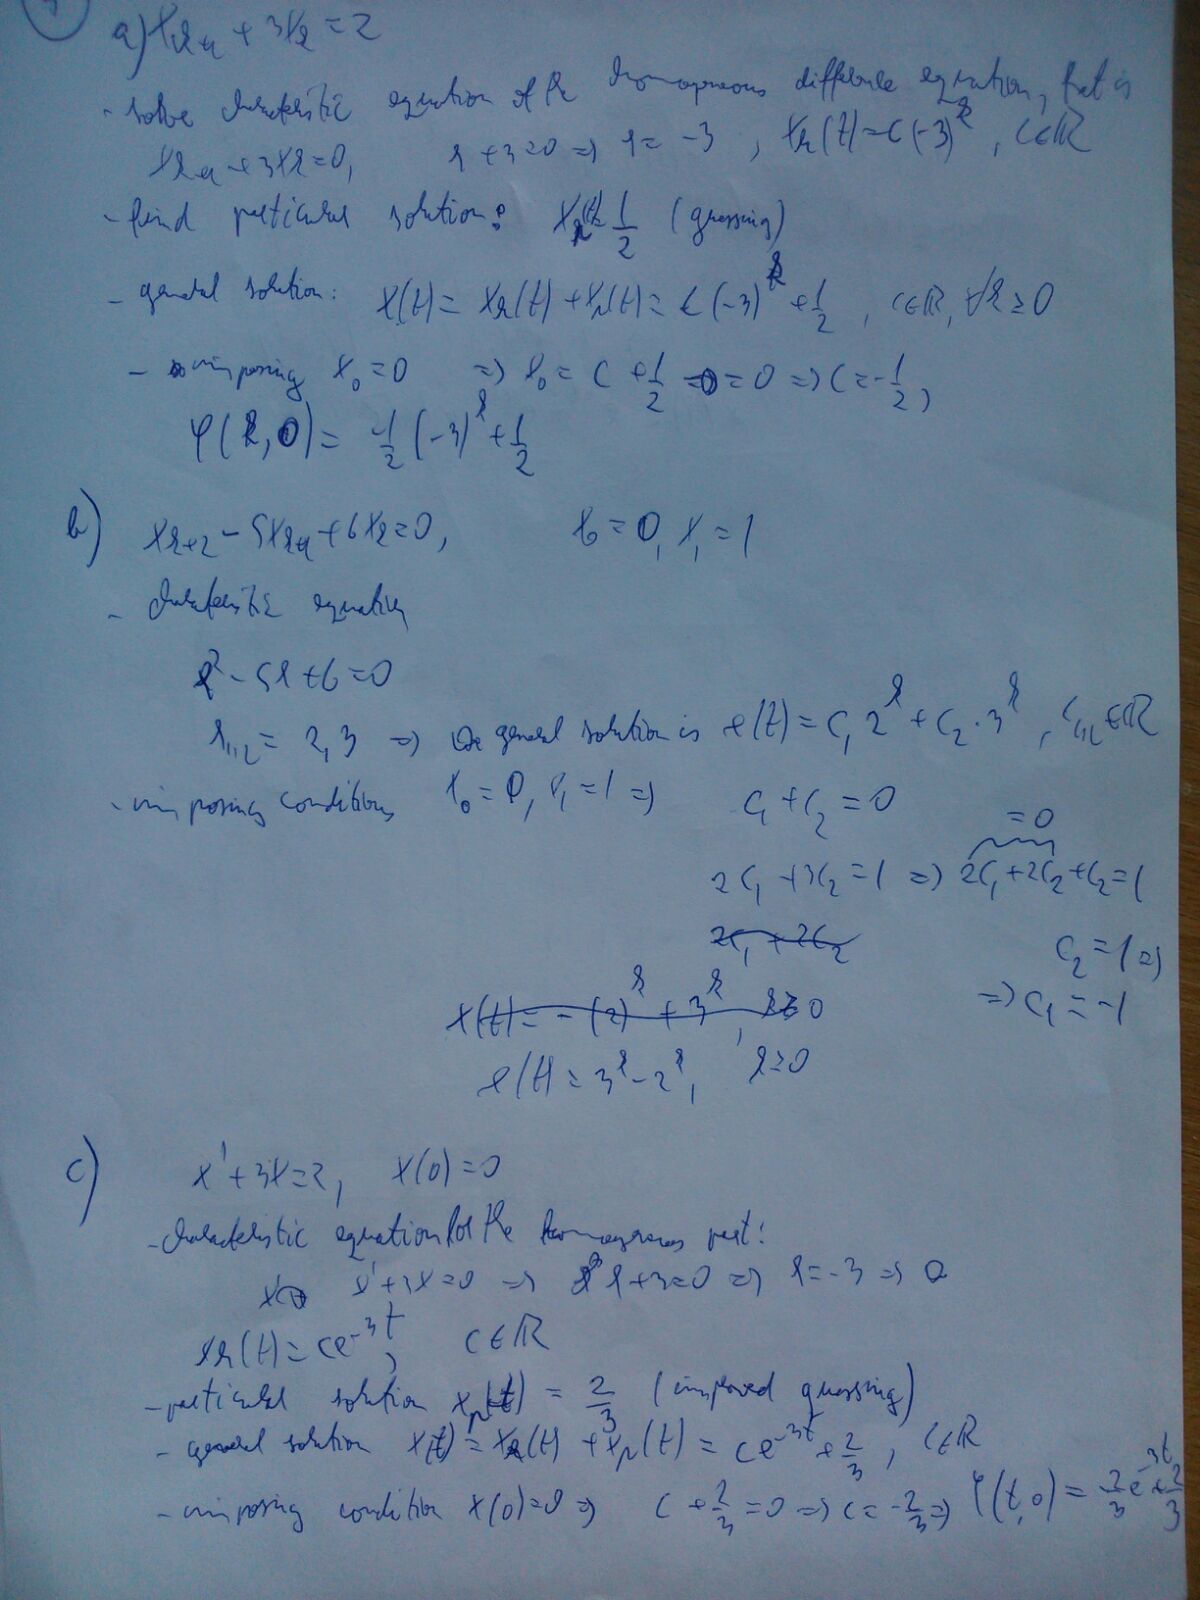 a) x_{k+1} + 3x_k = 2
- solve characteristic equation of the homogeneous difference equation, that is
x_{k+1} + 3x_k = 0, r + 3 = 0 => r = -3, x_h(t) = c(-3)^k, c ∈ ℝ
- find particular solution: x_p(t) = 1/2 (guessing)
- general solution: x(t) = x_h(t) + x_p(t) = c(-3)^k + 1/2, c ∈ ℝ, ∀k ≥ 0
- imposing x_0 = 0 => x_0 = c + 1/2 = 0 => c = -1/2,
φ(k, 0) = -1/2 (-3)^k + 1/2
b) x_{k+2} - 5x_{k+1} + 6x_k = 0, x_0 = 0, x_1 = 1
- characteristic equation
r^2 - 5r + 6 = 0
r_{1,2} = 2, 3 => the general solution is x(t) = c_1 2^k + c_2 · 3^k, c_{1,2} ∈ ℝ
- imposing conditions x_0 = 0, x_1 = 1 => c_1 + c_2 = 0
= 0
2c_1 + 3c_2 = 1 => 2c_1 + 2c_2 + c_2 = 1
2c_1 + 2c_2
c_2 = 1 =>
=> c_1 = -1
x(t) = -(2)^k + 3^k, k ≥ 0
x(t) = 3^k - 2^k, k ≥ 0
c) x' + 3x = 2, x(0) = 0
- characteristic equation for the homogeneous part:
x' + 3x = 0 => r + 3 = 0 => r = -3 =>
x_h(t) = ce^{-3t}, c ∈ ℝ
- particular solution x_p(t) = 2/3 (improved guessing)
- general solution x(t) = x_h(t) + x_p(t) = ce^{-3t} + 2/3, c ∈ ℝ
- imposing condition x(0) = 0 => c + 2/3 = 0 => c = -2/3 => φ(t, 0) = -2/3 e^{-3t} + 2/3